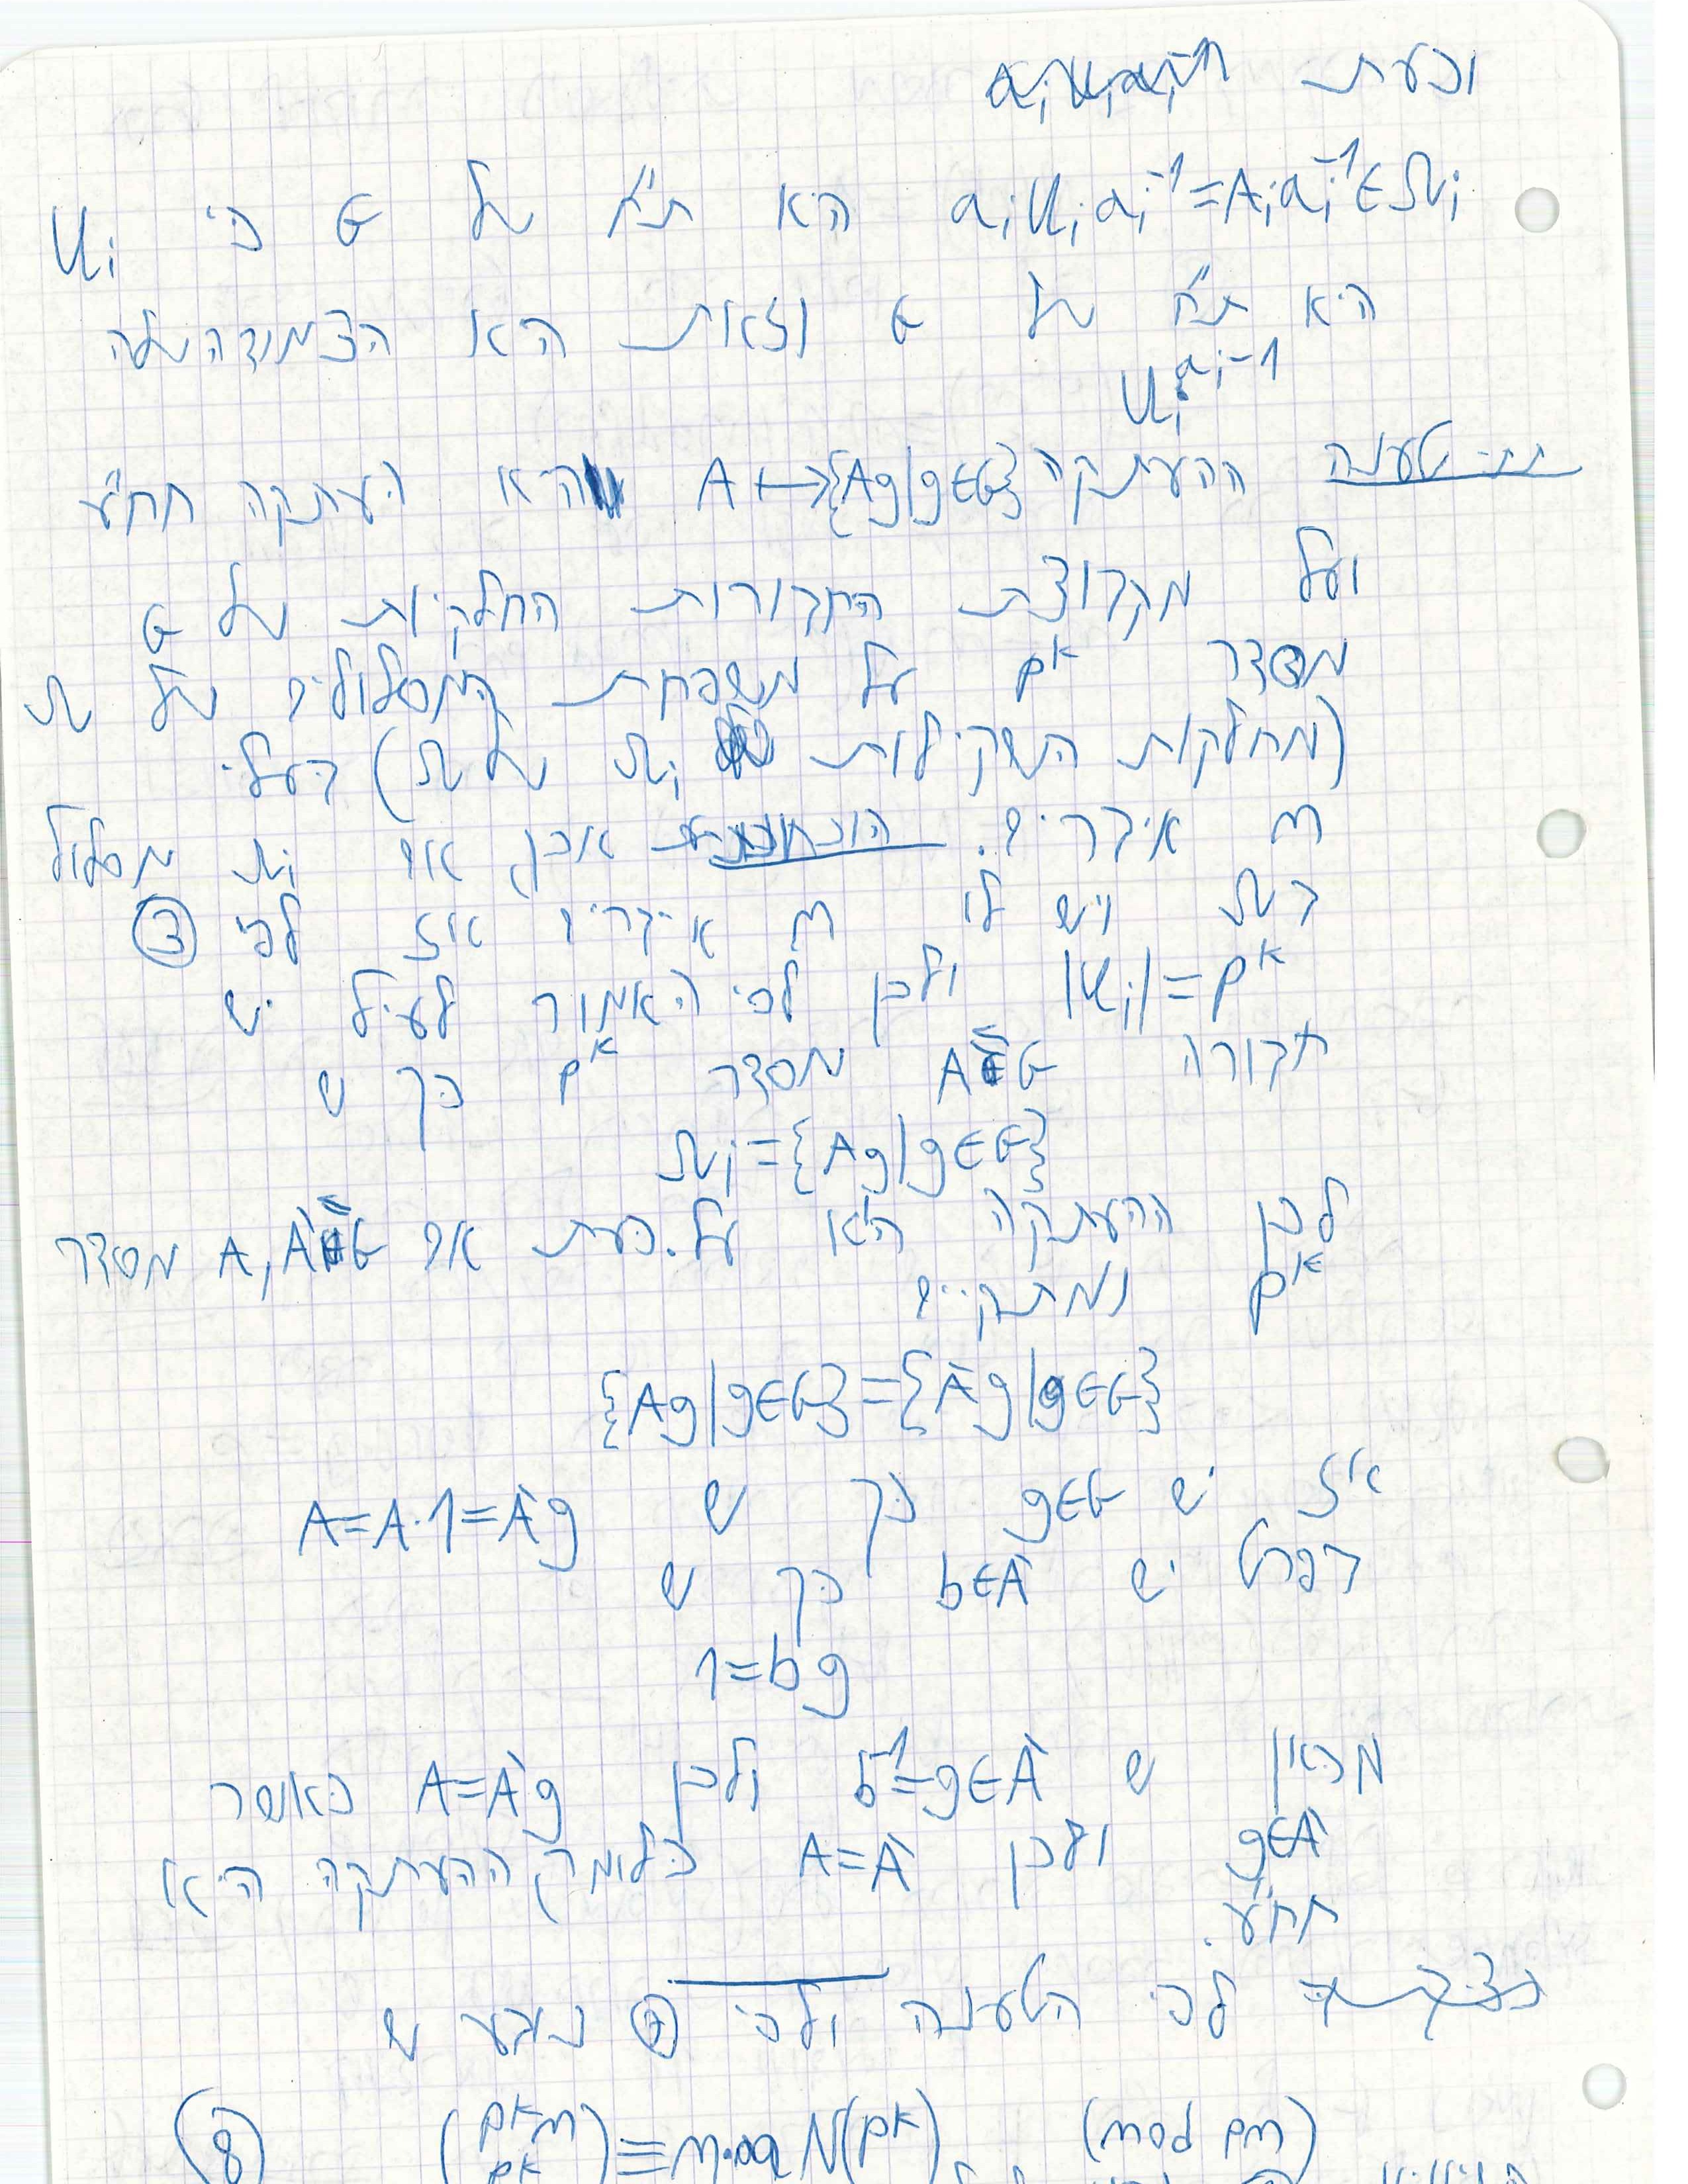 וכעת
a_i U_i a_i^{-1} = A_i a_i^{-1} ∈ Ω_i היא ת"ח של G כי U_i
היא ת"ח של G וזאת היא הצמודה שלה
U_i^{a_i^{-1}}
תת-טענה ההעתקה A ↦ {Ag|g∈G} היא העתקה חח"ע
ועל מקבוצת החבורות החלקיות של G
מסדר p^k על משפחת המסלולים של Ω
(מחלקות השקילות Ω_i של Ω) בעלי
m איברים. הוכחה אכן, אם Ω_i מסלול
ב Ω ויש לו m איברים אז לפי ③
|U_i|=p^k ולכן לפי האמור לעיל יש
חבורה A≤G מסדר p^k כך ש
Ω_i={Ag|g∈G}
לכן ההעתקה היא על. כעת אם A,A'≤G מסדר
p^k ומתקיים
{Ag|g∈G}={A'g|g∈G}
אז יש g∈G כך ש A=A·1=A'g
בפרט יש b∈A' כך ש
1=bg
מכאן ש b^{-1}=g∈A' ולכן A=A'g כאשר
g∈A' ולכן A=A' כלומר, ההעתקה היא
חח"ע.
לפי הטענה ולפי נובע ש
⑧ (p^k m / p^k) ≡ m· N(p^k) (mod pm)